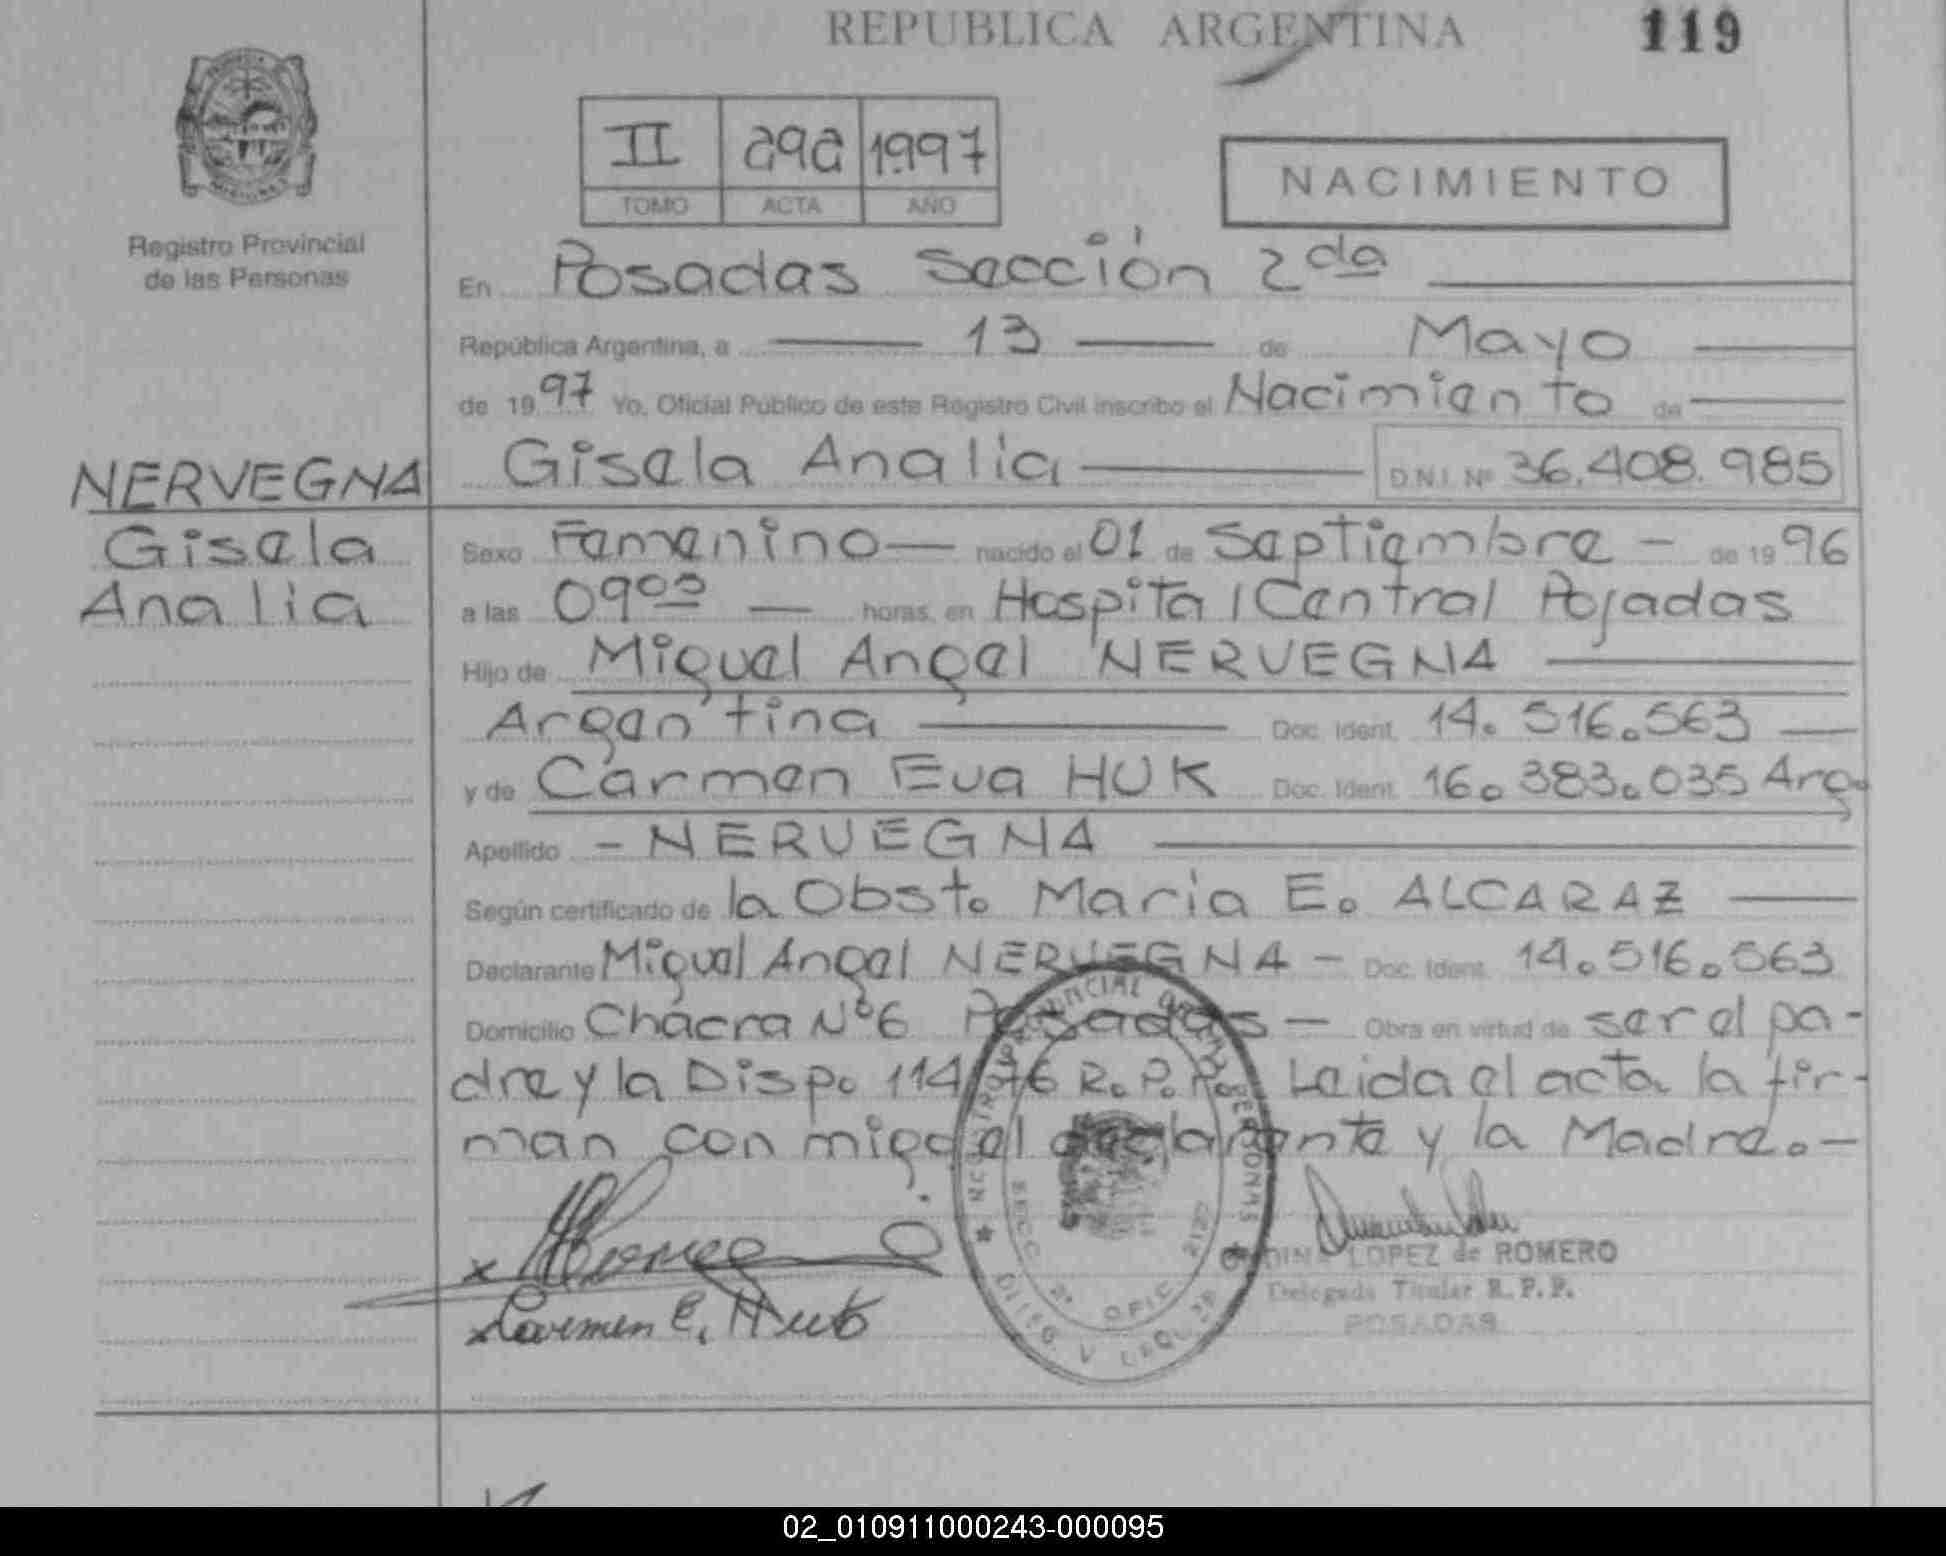 REPUBLICA ARGENTINA 119
II 292 1997
TOMO ACTA AÑO
NACIMIENTO
Registro Provincial
de las Personas
En Posadas Sección 2da
República Argentina, a 13 de Mayo
de 1997 Yo, Oficial Público de este Registro Civil inscribo el Nacimiento de
NERVEGNA
Gisela
Analia
Gisela Analia D.N.I. Nº 36.408.985
Sexo Femenino nacido el 01 de Septiembre - de 1996
a las 09oo horas, en Hospital Central Posadas
Hijo de Miguel Angel NERVEGNA
Argentina Doc. Ident. 14.516.563
y de Carmen Eva HUK Doc. Ident. 16.383.035 Arg.
Apellido - NERVEGNA
Según certificado de la Obst. Maria E. ALCARAZ
Declarante Miguel Angel NERVEGNA - Doc. Ident. 14.516.563
Domicilio Chacra Nº6 Posadas - Obra en virtud de ser el pa-
dre y la Disp. 114/76 R.P.P. Leida el acta la fir-
man con migo el declarante y la Madre.-
Carmen E. Huk
LOPEZ de ROMERO
Delegada Titular R.P.P.
POSADAS
02_010911000243-000095